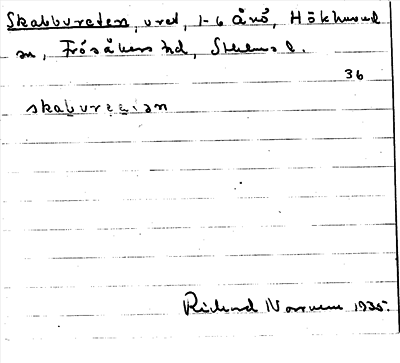 Skabbvreten, vret, 1-6 Ånö, Hökhuvud
sn, Frösåkers hd, Sthlms l.
36
skabvretən
Richard Norrman 1935.